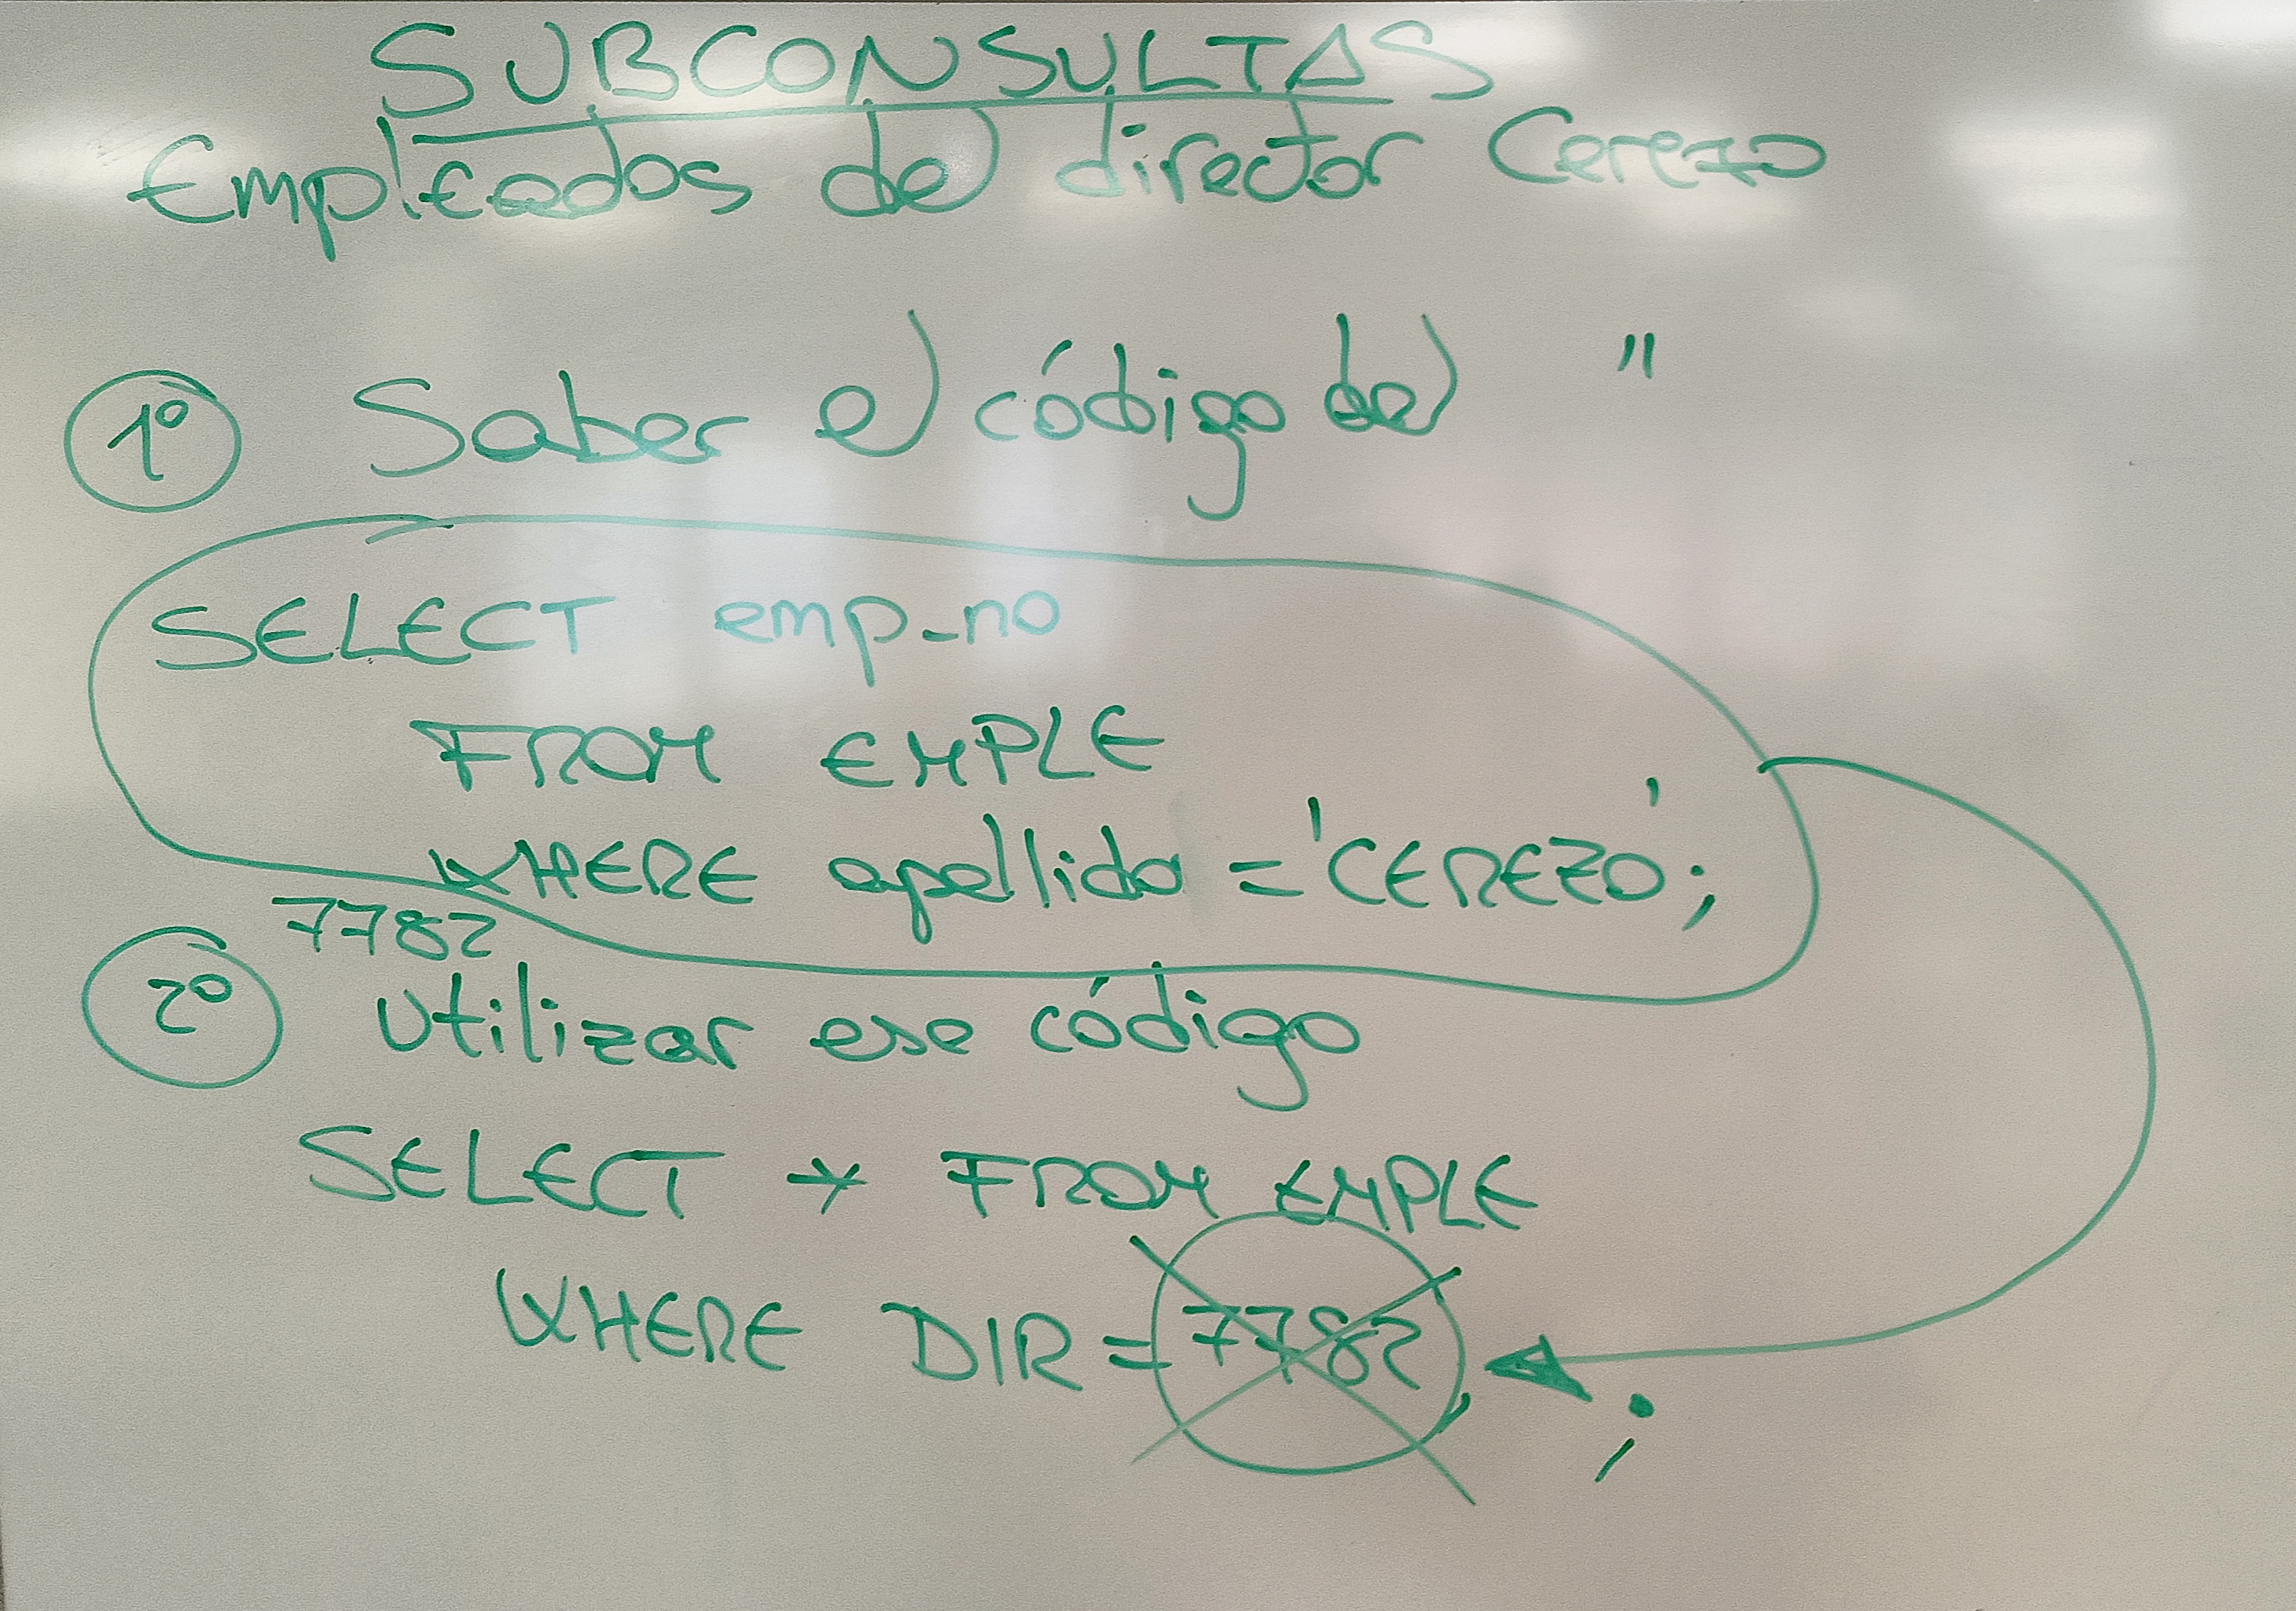 SUBCONSULTAS
Empleados del director Cerezo
1º Saber el código del "
SELECT emp_no
FROM EMPLE
WHERE apellido = 'CEREZO';
7782
2º Utilizar ese código
SELECT * FROM EMPLE
WHERE DIR = 7782 ;